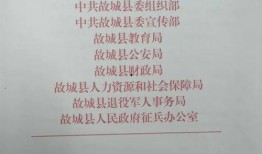 中共故城县委组织部
中共故城县委宣传部
故城县教育局
故城县公安局
故城县财政局
故城县人力资源和社会保障局
故城县退役军人事务局
故城县人民政府征兵办公室